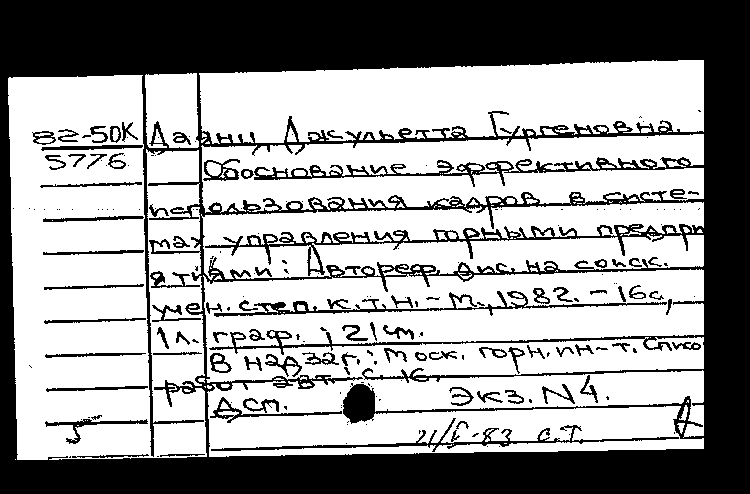 82-50К Даянц, Джульетта Гургеновна.
5776 Обоснование эффективного
использования кадров в систе-
мах управления горными предпри
ятиями: Автореф. дис. на соиск.
учен. степ. к.т.н. - М., 1982. - 16 с,
1 л. граф. ; 21 см.
В надзаг.: Моск. горн. ин-т. Списо
работ авт.: с. 16.
Дсп. Экз. N4.
5 21/V-83 С.Т. Д